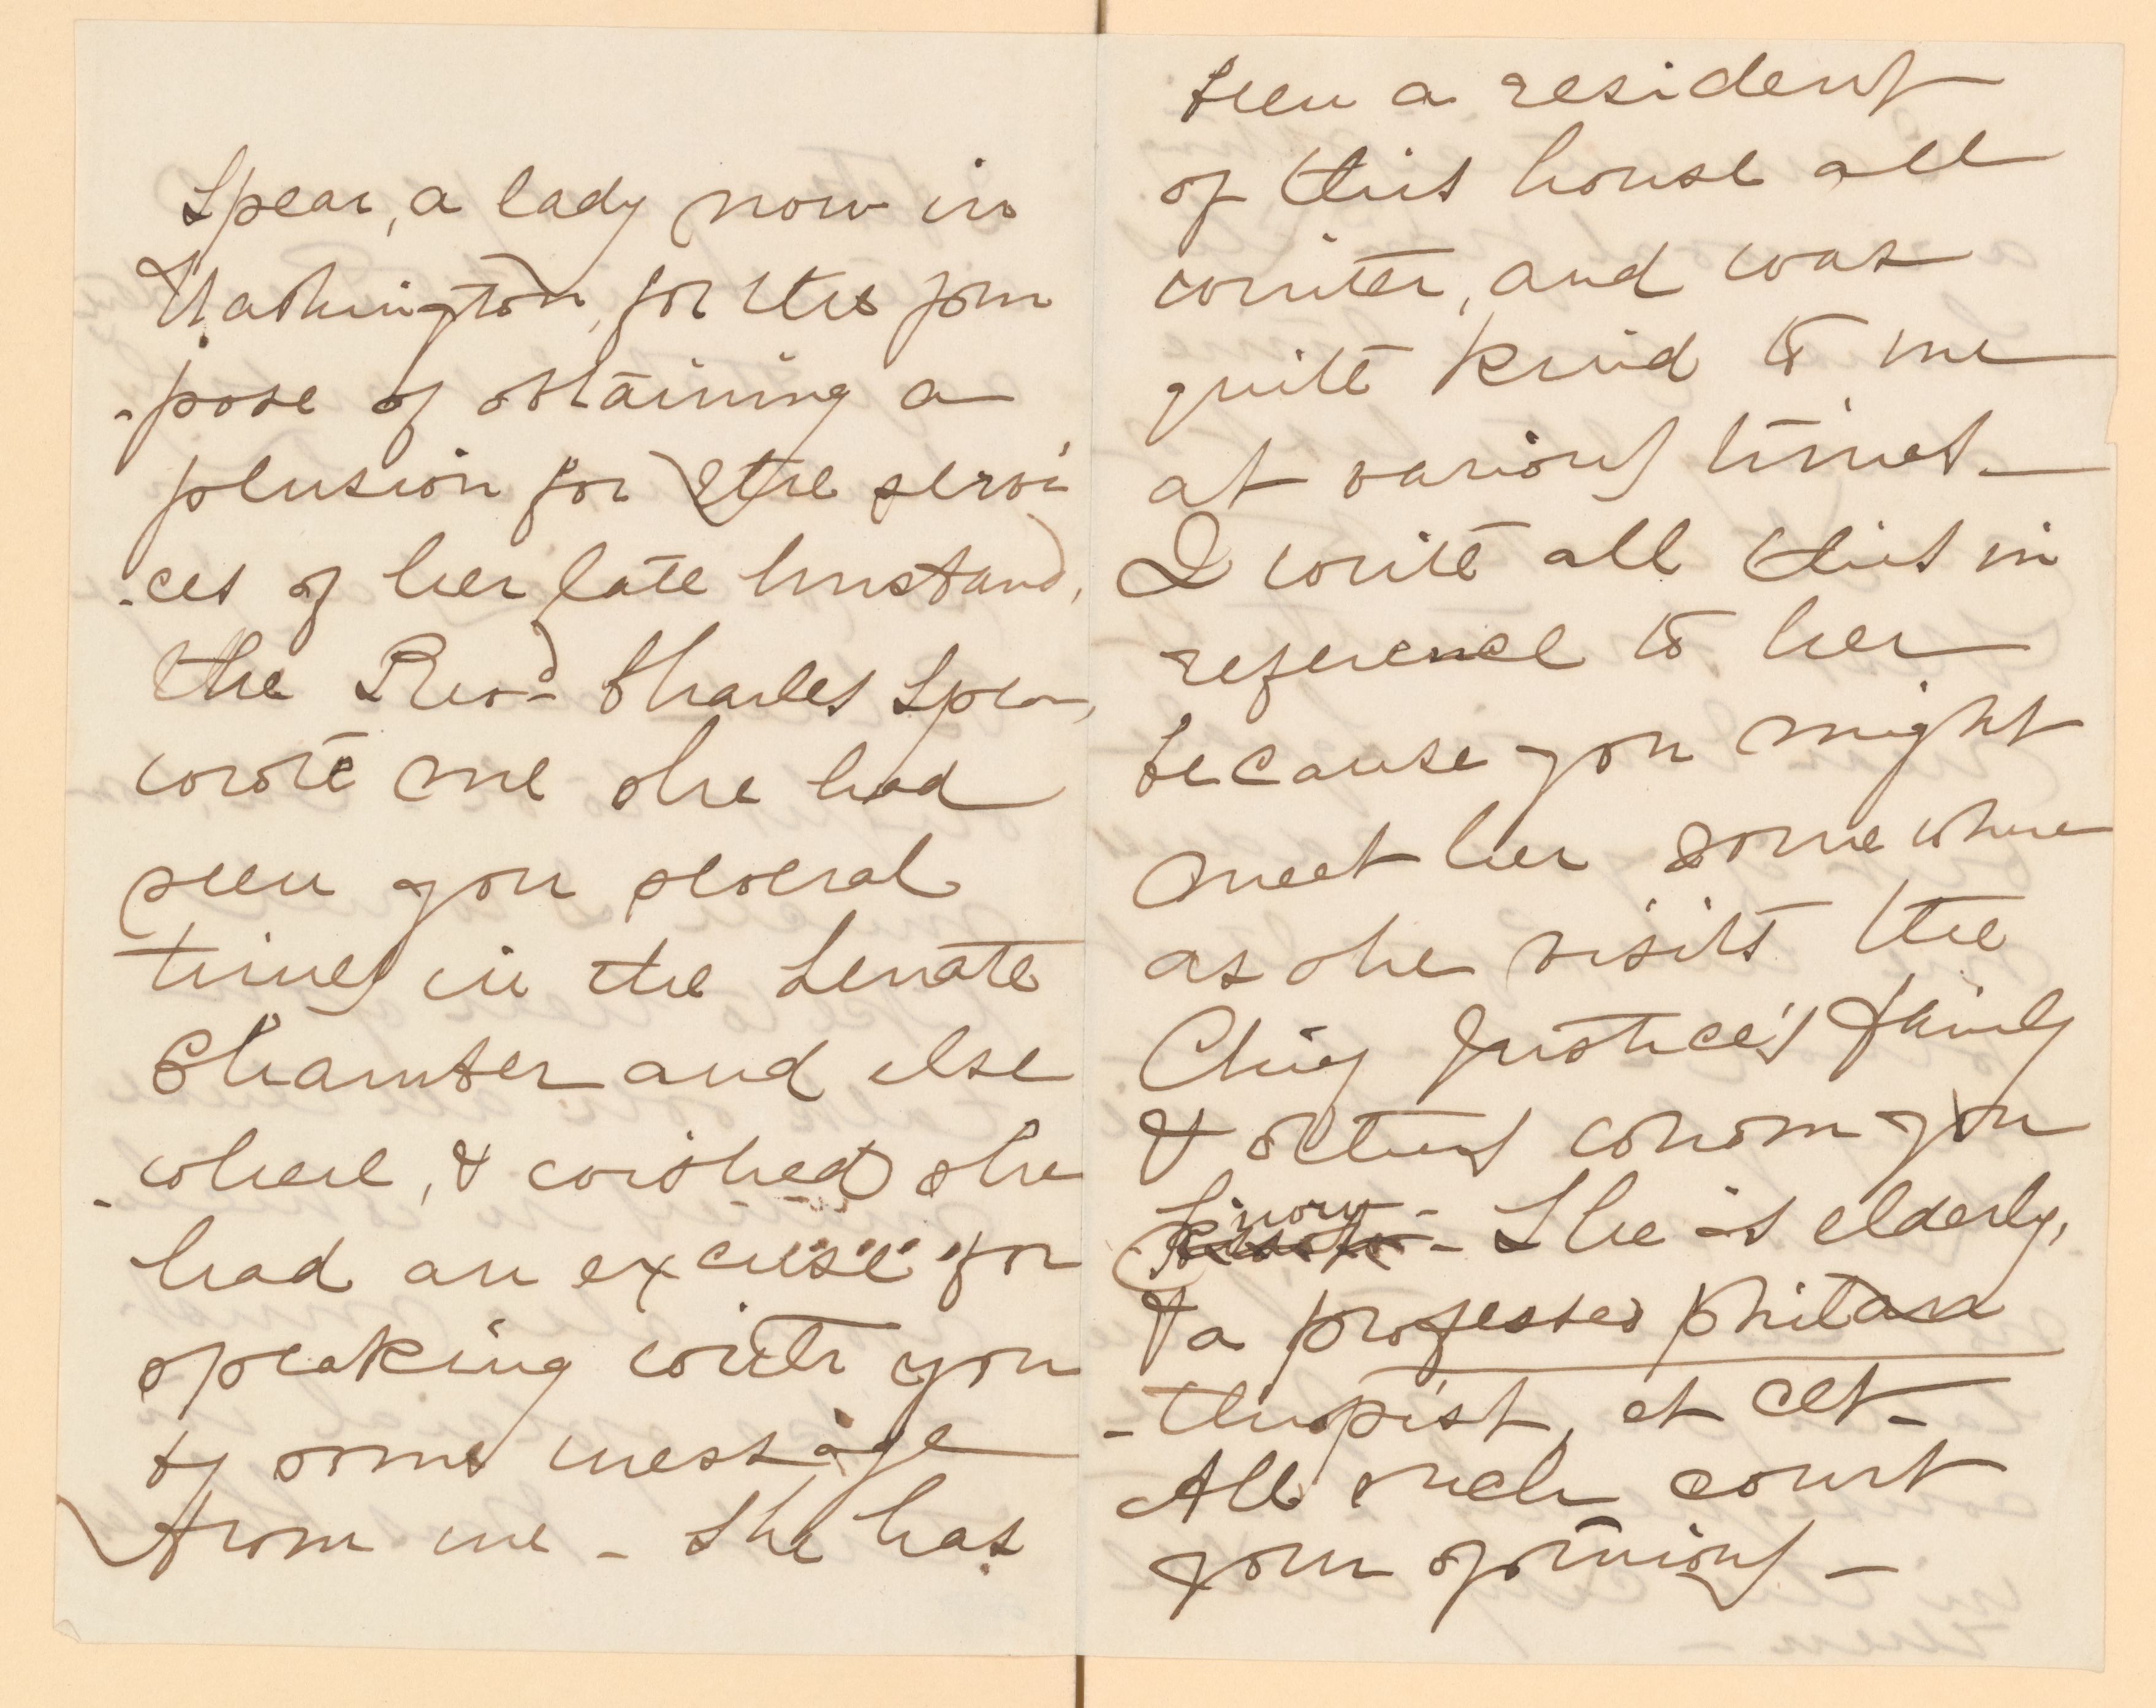 Spear, a lady now in
Washington, for the pur
-pose of obtaining a
pension for the servi
-ces of her late husband,
the Revd. Charles Spear,
wrote me she had
seen you several
times in the Senate
Chamber and else
-where, & wished she
had an excuse for
speaking with you
by some message
from me - She has
been a resident
of this house all
winter, and was
quite kind to me
at various times.
I write all this in
reference to her
because you might
meet her somewhere
as she visits the
Chief Justice's family
& others whom you
know - She is elderly,
& a professed philan
-thropist, et cet -
All such court
your opinions -